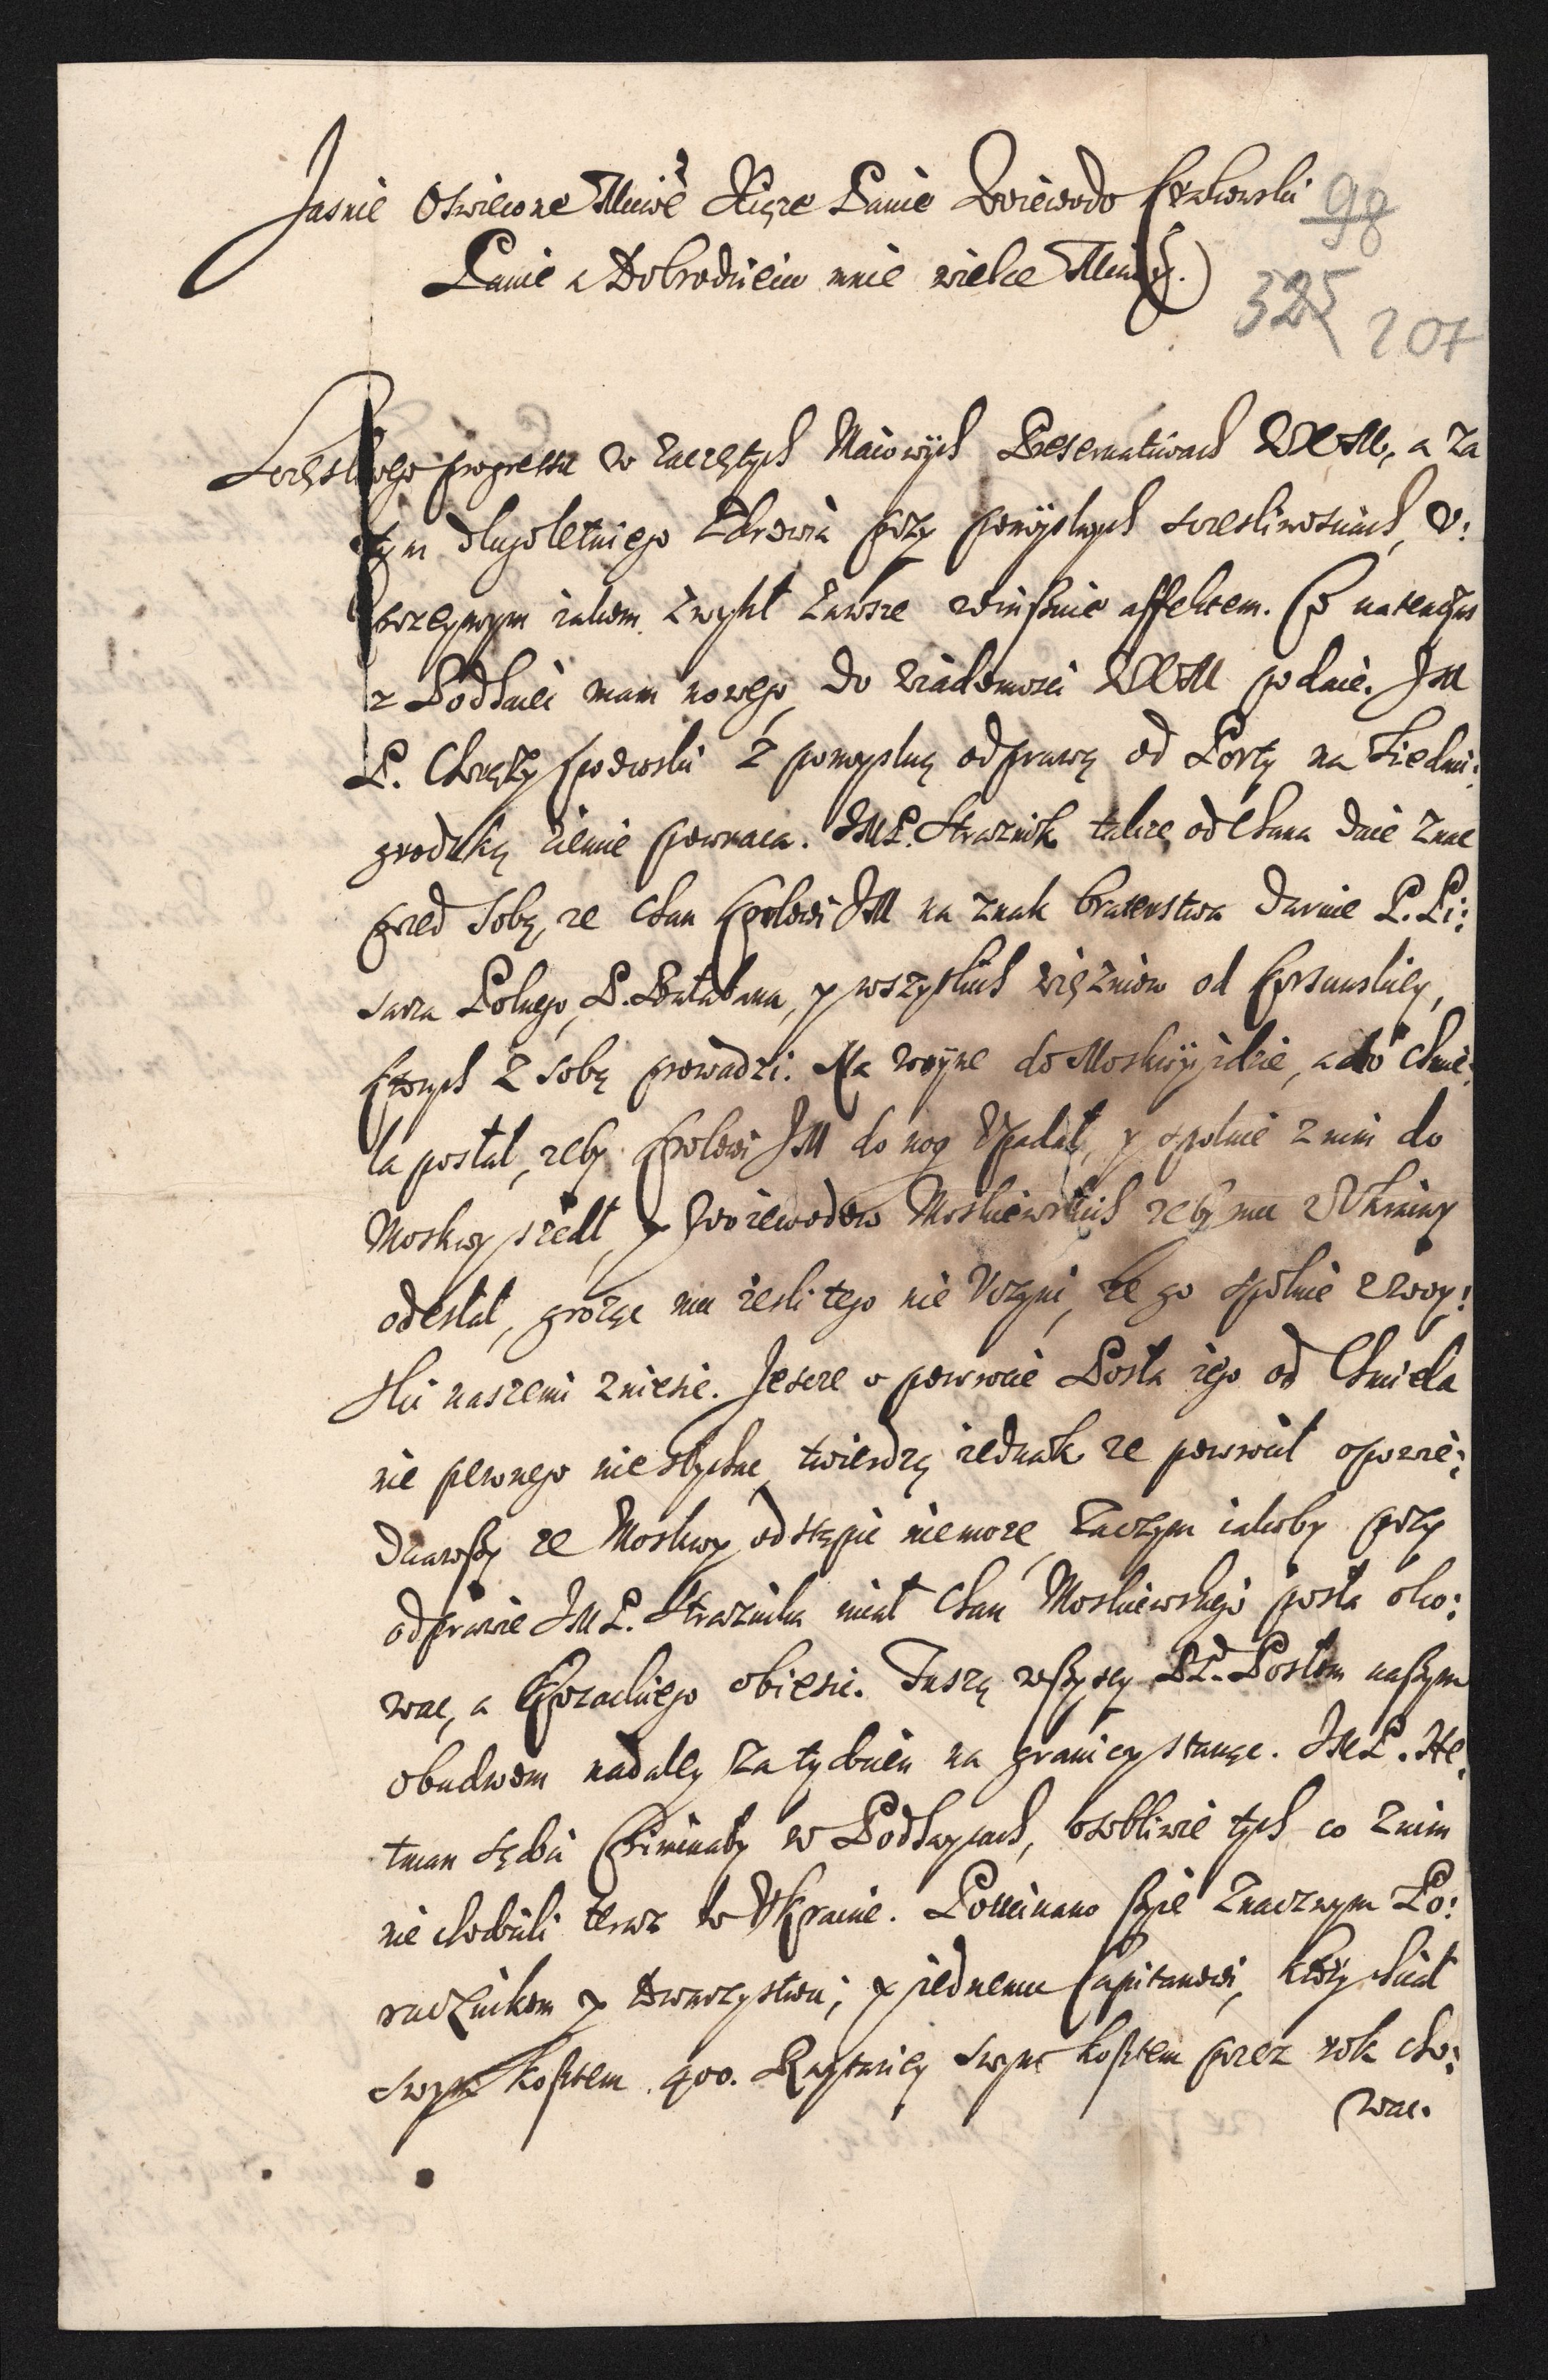 Jasnie Oswiecone Miłwe Xiąze Panie Woiewodo Krakowski
Panie a Dobrodzieiu mnie wielce Miłwy.
98
325 207
Sczęsliwego progressu w zaczętych Maiowych Preseruatiwach WXM, a za
tym długoletniego zdrowia przy pomyslnych sczesliwosciach, v:
przeymym iakom zwykł zawsze winszuie affektem. Co natenczas
z Podhaiec mam nowego, do wiadomosci WXM podaie. JM
P. Chorązy Lwowski z pomyslną odprawą od Porty na Siedmi:
grodzką ziemie powraca. JMP. Straznik takze od Chana daie znac
przed sobą, ze Chan Krolowi JM na znak braterstwa daruie P. Pi:
sarza Polnego, P. Bałabana, y wszystkich więzniow od Korsunskiey,
ktorych z sobą prowadzi. Na woynę do Moskwy idzie, a do Chmie:
la posłał, zeby Krolowi JM do nog vpadał, y spolnie z nim do
Moskwy szedł, y Woiewodow Moskiewskich zeby mu z Vkrainy
odesłał, grożąc mu iesli tego nie vczyni, ze go spolnie z woy:
ski naszemi zniesie. Jescze o powrocie Posła iego od Chmiela
nic pewnego nie słychac, twierdzą iednak ze powrocił opowie:
dziawszy ze Moskwy odstąpic niemoze, zaczym iakoby przy
odprawie JMP. Straznika miał Chan Moskiewskiego posła oko:
wac, a Kozackiego obiesic. Tuszą wszyscy PP. Posłom naszym
obudwom nadaley za tydzien na granicy stanąc. JMP. He:
tman sądzi Kriminały w Podhaycach, osobliwie tych co z nim
nie chodzili teraz w Vkraine. Poucinano szyie znacznym Po:
rucznikom y towarzystwu; y iednemu Capitanowi, ktory chciał
swym kosztem 400. Raytariey swym kosztem przez rok cho:
wac.